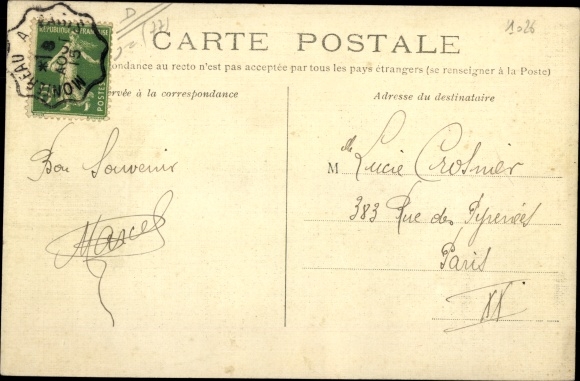 D
(77)
1026
MONTEREAU A
* 8
AOU
15
RÉPUBLIQUE FRANÇAISE
POSTES
CARTE POSTALE
ondance au recto n'est pas acceptée par tous les pays étrangers (se renseigner à la Poste)
ervée à la correspondance
Adresse du destinataire
Bon Souvenir
Marcel
M lle Lucie Crosnier
383 Rue des Pyrénées
Paris
XX